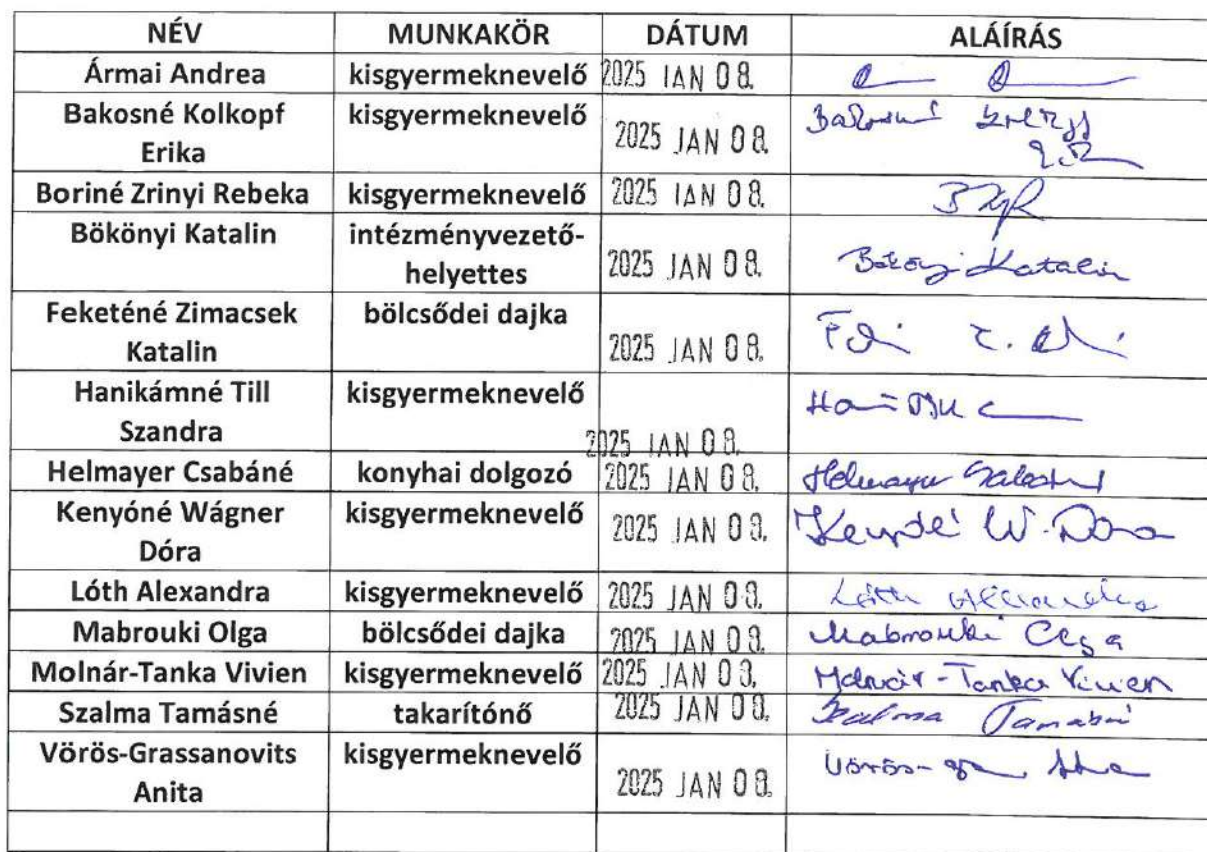 NÉV MUNKAKÖR DÁTUM ALÁÍRÁS
Ármai Andrea kisgyermeknevelő 2025 JAN 08.
Bakosné Kolkopf kisgyermeknevelő 2025 JAN 08.
Erika
Boriné Zrinyi Rebeka kisgyermeknevelő 2025 JAN 08.
Bökönyi Katalin intézményvezető- 2025 JAN 08. Bökönyi Katalin
helyettes
Feketéné Zimacsek bölcsődei dajka 2025 JAN 08.
Katalin
Hanikámné Till kisgyermeknevelő
Szandra 2025 JAN 08.
Helmayer Csabáné konyhai dolgozó 2025 JAN 08. Helmayer Csabáné
Kenyóné Wágner kisgyermeknevelő 2025 JAN 08. Kenyóné W. Dóra
Dóra
Lóth Alexandra kisgyermeknevelő 2025 JAN 08. Lóth Alexandra
Mabrouki Olga bölcsődei dajka 2025 JAN 08. Mabrouki Olga
Molnár-Tanka Vivien kisgyermeknevelő 2025 JAN 08. Molnár-Tanka Vivien
Szalma Tamásné takarítónő 2025 JAN 08. Szalma Tamásné
Vörös-Grassanovits kisgyermeknevelő 2025 JAN 08.
Anita